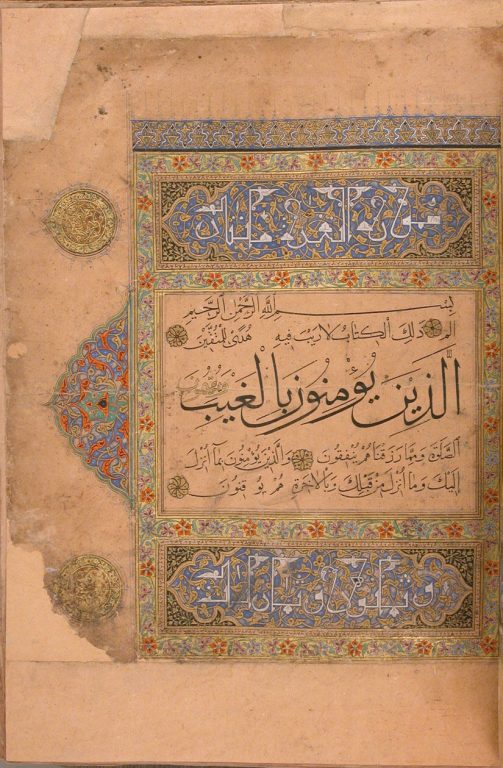 سورة البقرة
بِسْمِ اللَّهِ الرَّحْمٰنِ الرَّحِيمِ
الم ذلك الكتاب لا ريب فيه هُدًى لِلْمُتَّقِينَ
الَّذِينَ يُؤْمِنُونَ بِالْغَيْبِ وَيُقِيمُونَ
الصَّلٰوةَ وَمِمَّا رَزَقْنَاهُمْ يُنْفِقُونَ وَالَّذِينَ يُؤْمِنُونَ بِمَا أُنْزِلَ
إِلَيْكَ وَمَا أُنْزِلَ مِنْ قَبْلِكَ وَبِالْآخِرَةِ هُمْ يُوقِنُونَ